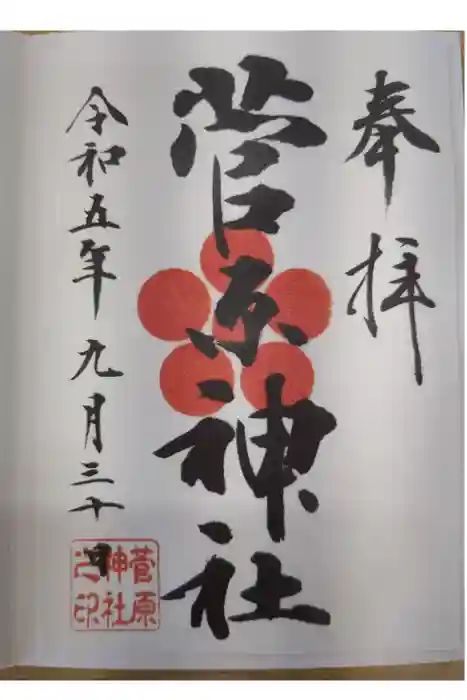 奉拝
菅原神社
令和五年九月三十日
菅原
神社
之印